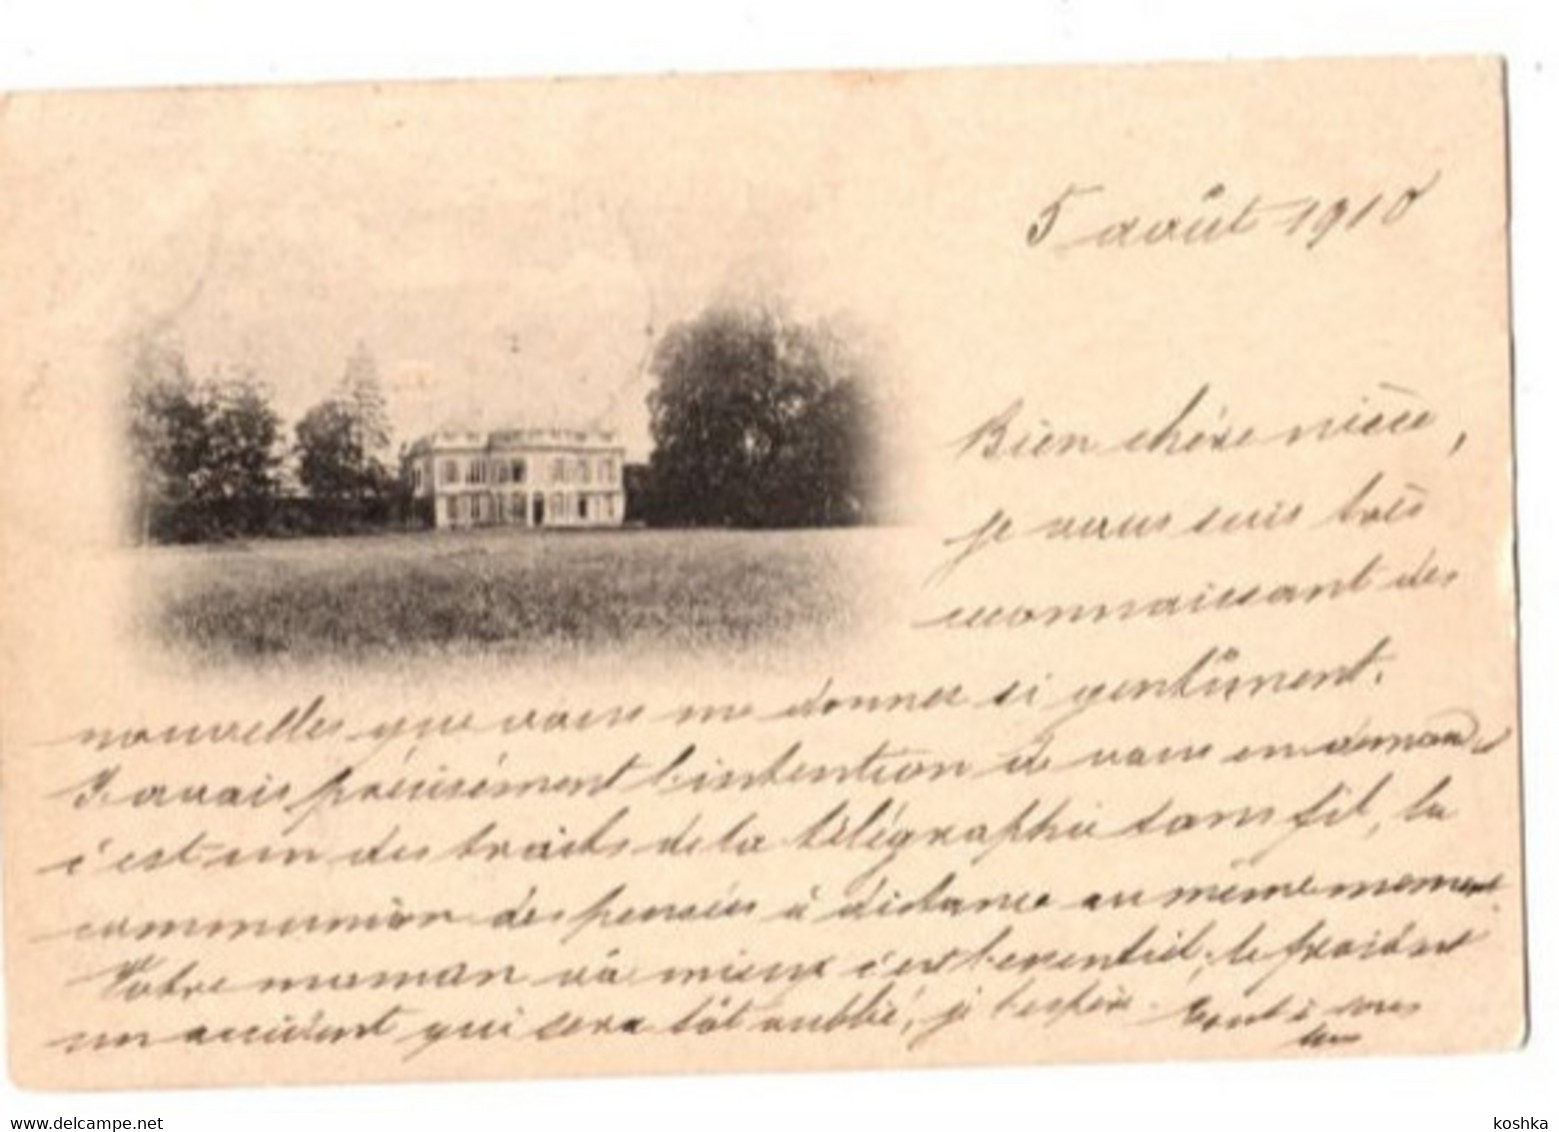 5 août 1910
Bien chère nièce,
je vous suis très
reconnaissant des
nouvelles que vous me donnez si gentiment.
J'avais précisément l'intention de vous en demand
c'est un des traits de la télégraphie sans fil, la
communion des pensées à distance au même moment.
Votre maman va mieux c'est l'essentiel; le froid est
un accident qui sera tôt oublié, je l'espère. Tout à vous
www.delcampe.net
koshka